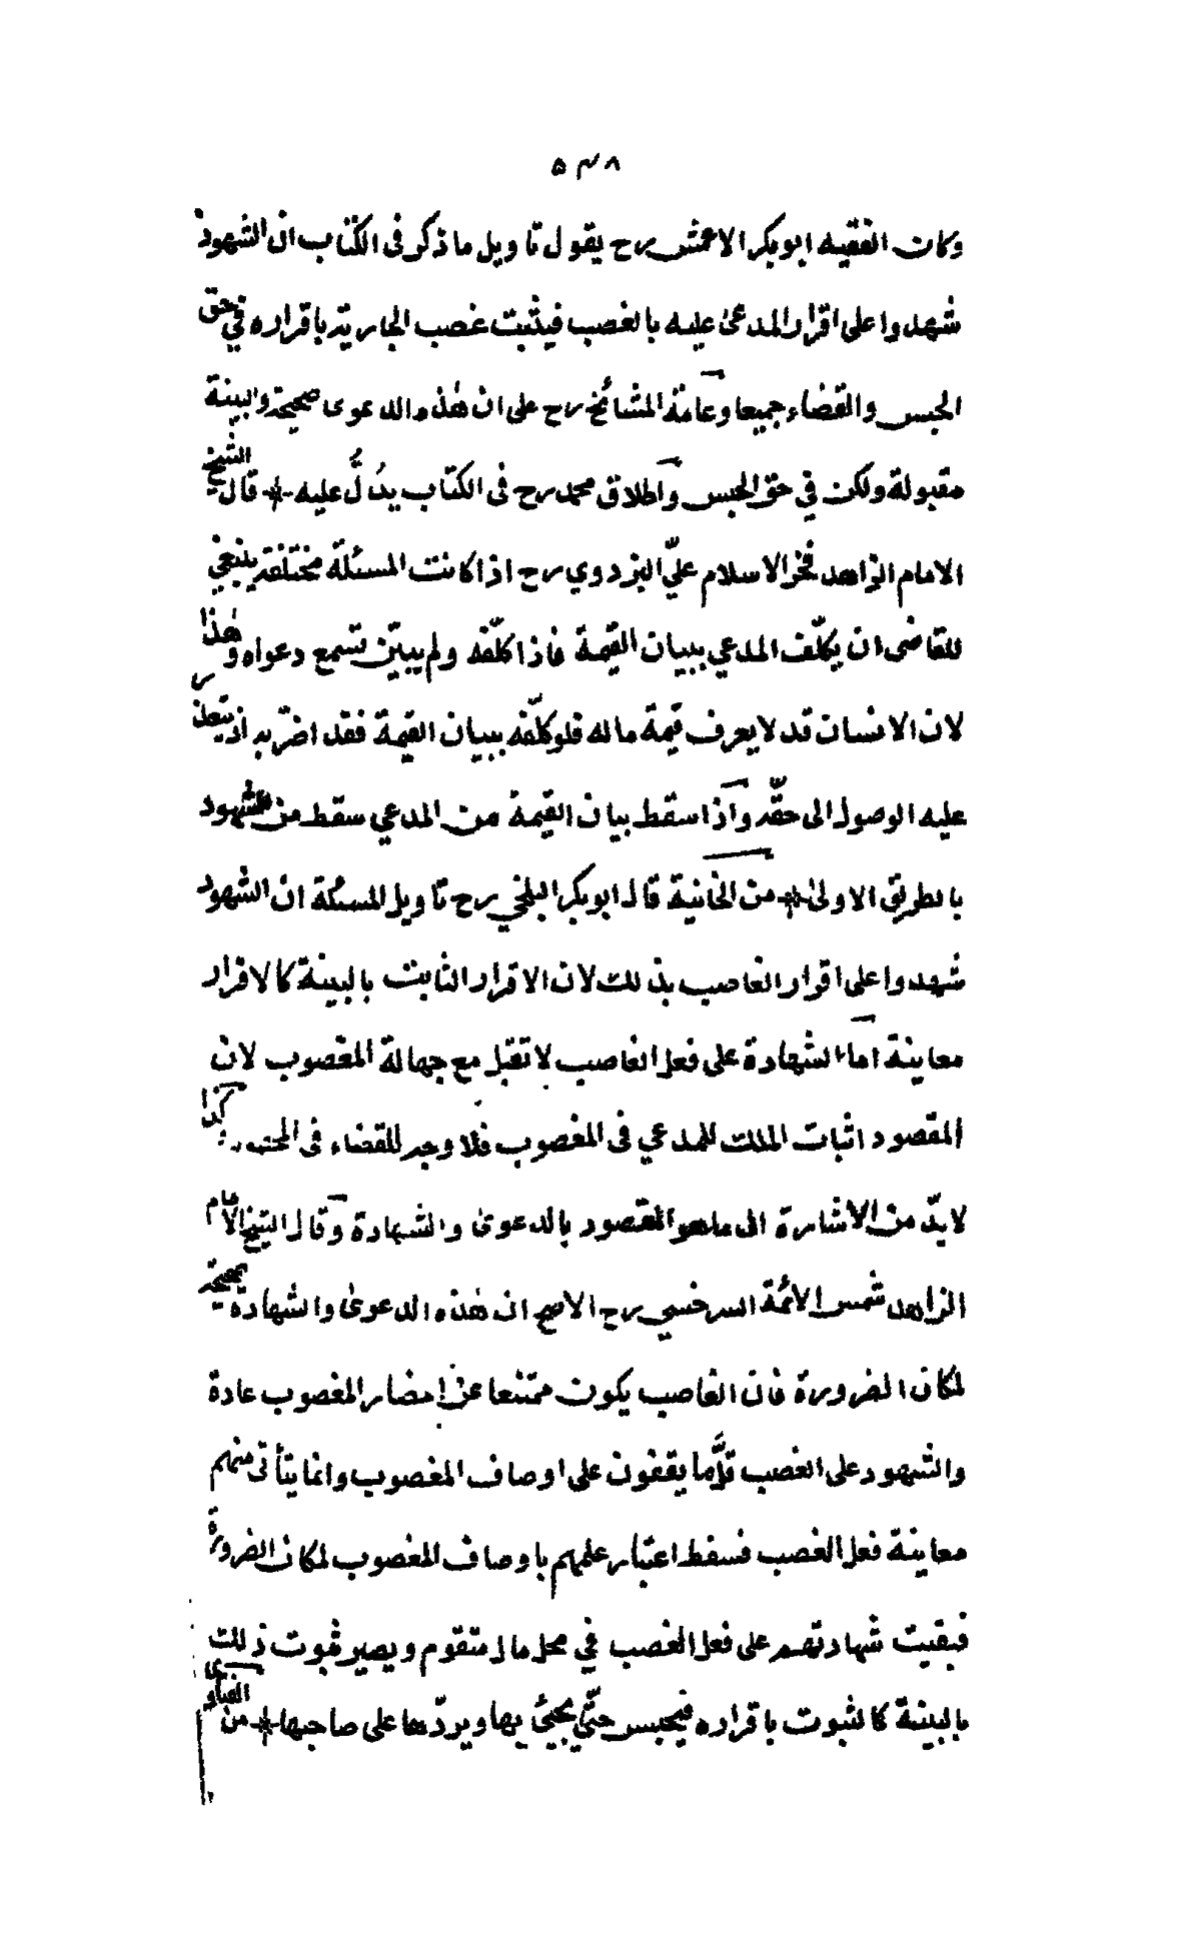 ٥٣٨
وكان الفقيه ابو بكر الاعمش رح يقول تاويل ما ذكر فى الكتاب ان الشهود
شهدوا على اقرار المدعىٰ عليه بالغصب فيثبت غصب الجارية باقراره في حق
الحبس والقضاء جميعا وعامة المشائخ رح على ان هٰذه الدعوى صحيحة والبينة
مقبولة ولكن في حق الحبس واطلاق محمد رح فى الكتاب يدُلّ عليه * قال الشيخ
الامام الزاهد فخر الاسلام عليّ البزدوي رح اذا كانت المسئلة مختلفة ينبغي
للقاضى ان يكلّف المدعي ببيان القيمة فاذا كلّفه ولم يبيّن تسمع دعواه وهٰذا
لان الانسان قد لا يعرف قيمة ماله فلو كلّفه ببيان القيمة فقد اضرّ به اذ يتعذر
عليه الوصول الى حقّه واذا سقط بيان القيمة من المدعي سقط من الشهود
بالطريق الاولىٰ * من الخانية قال ابو بكر البلخي رح تاويل المسئلة ان الشهود
شهدوا على اقرار الغاصب بذلك لان الاقرار الثابت بالبينة كالاقرار
معاينة اما الشهادة على فعل الغاصب لا تقبل مع جهالة المغصوب لان
المقصود اثبات الملك للمدعي فى المغصوب فلا وجه للقضاء فى كذا
لابدّ من الاشارة الى ما هو المقصود بالدعوىٰ والشهادة وقال الشيخ الامام
الزاهد شمس الائمة السرخسي رح الاصح ان هٰذه الدعوىٰ والشهادة صحيحة
لمكان الضرورة فان الغاصب يكون ممتنعا عن احضار المغصوب عادة
والشهود على الغصب قلّما يقفون على اوصاف المغصوب وانما يتأتى منهم
معاينة فعل الغصب فسقط اعتبار علمهم باوصاف المغصوب لمكان الضرورة
فبقيت شهادتهم على فعل الغصب في محل مال متقوم ويصير ثبوت ذلك
بالبينة كالثبوت باقراره فيحبس حتّى يجيئ بها ويردّها على صاحبها * من الفتاوى